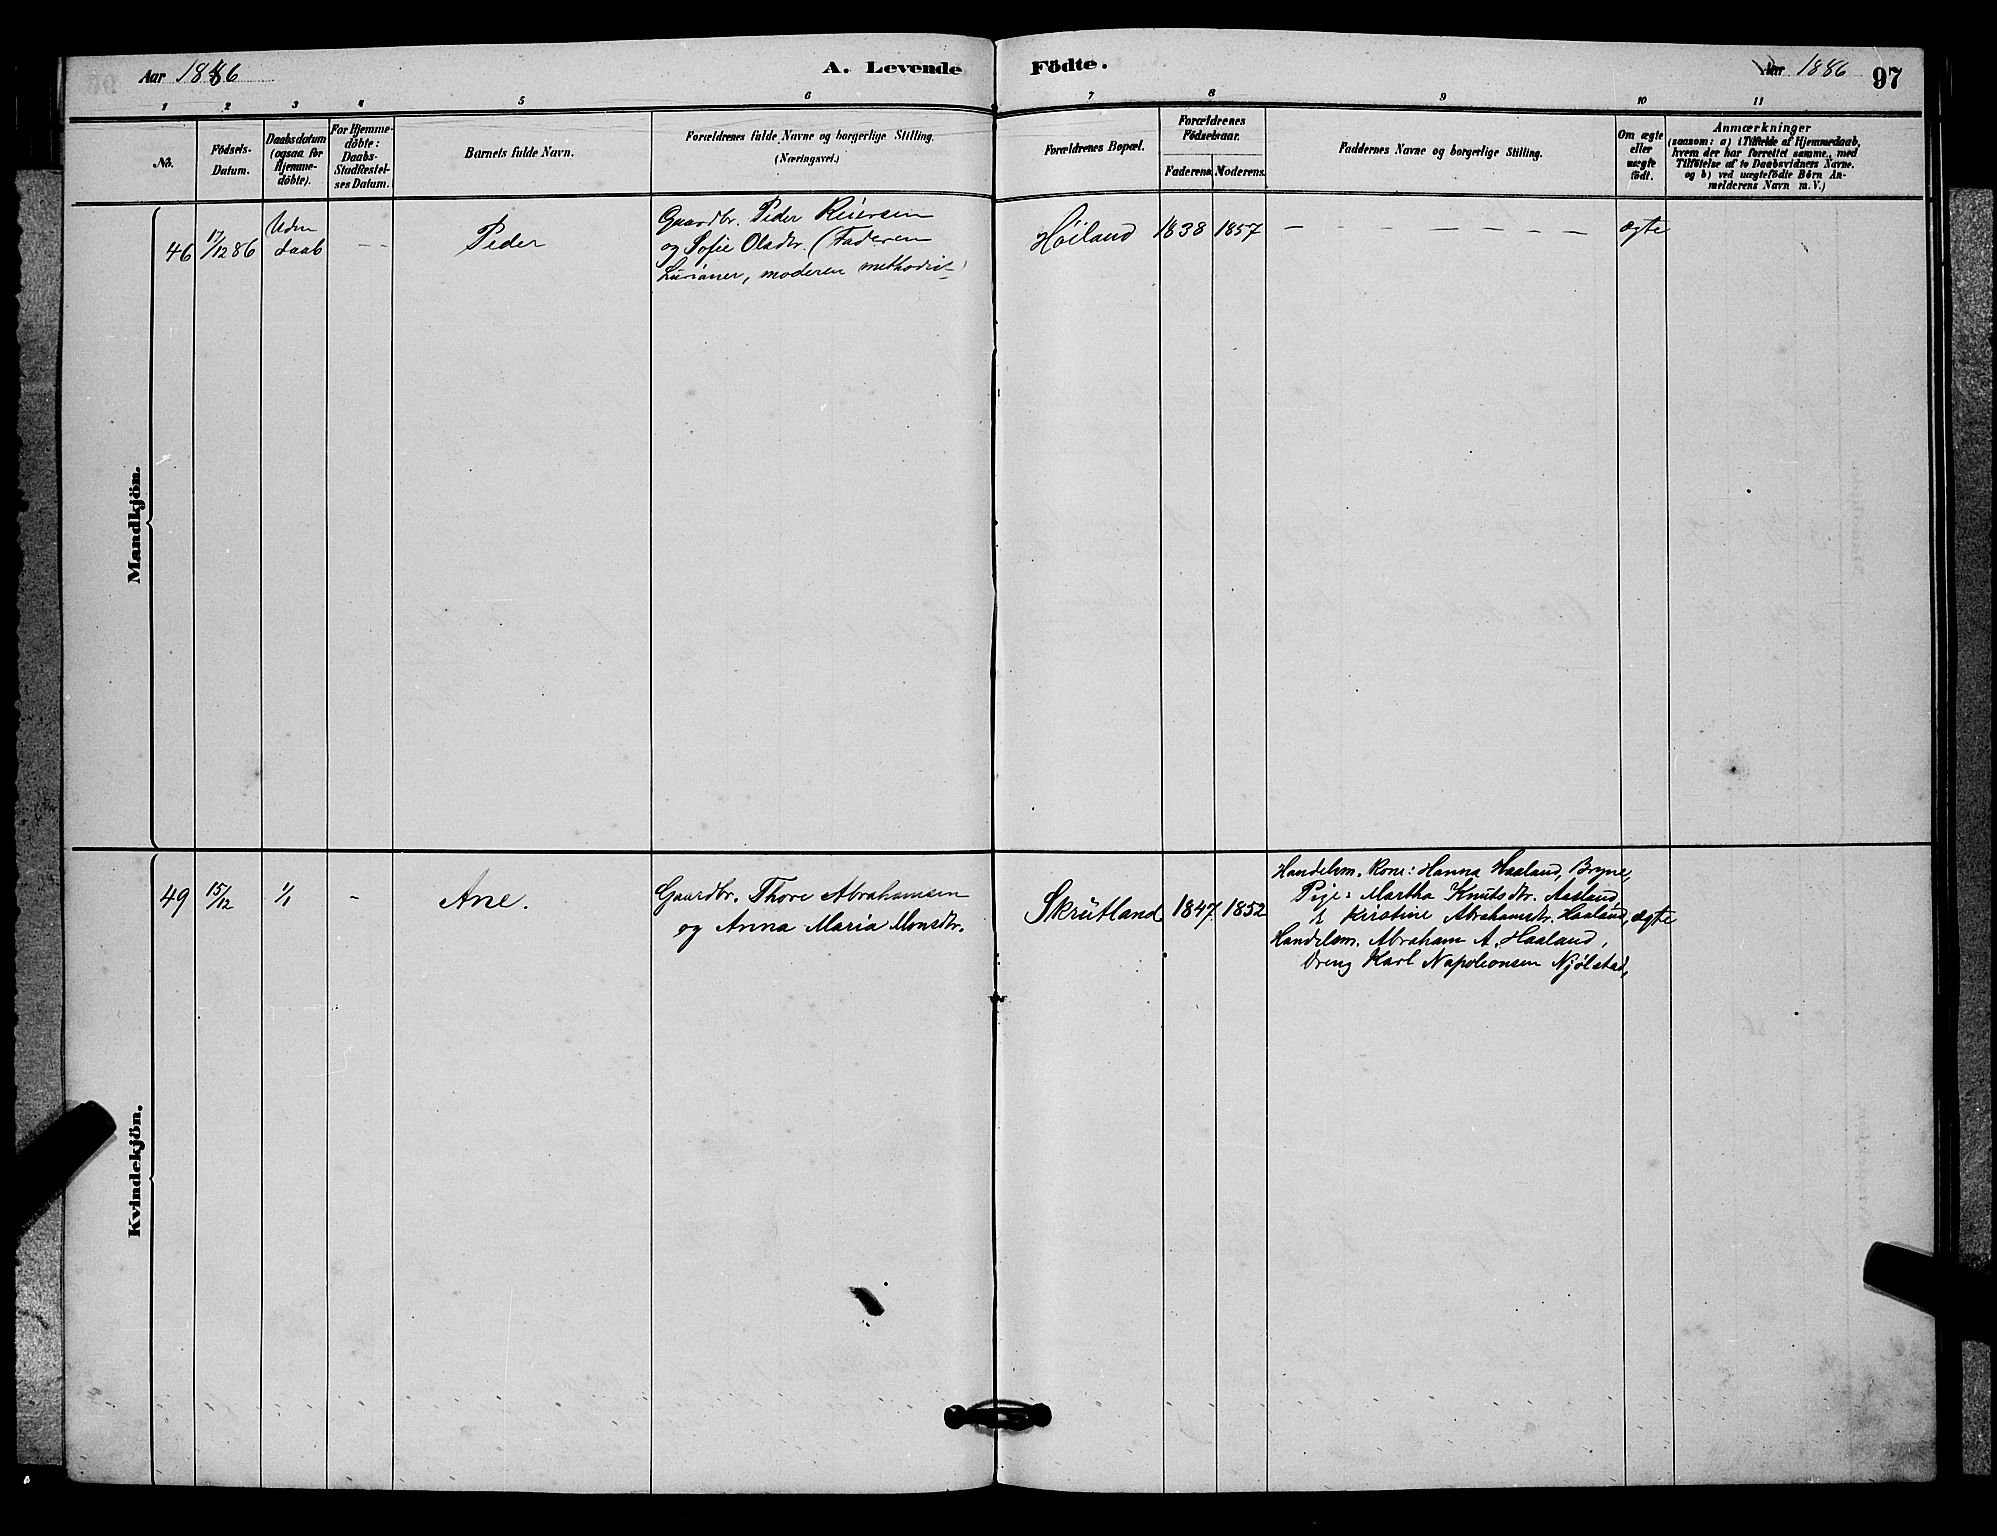 Aar 1886 A. Levende Födte. Aar 1886 97
1 2 3 4 5 6 7 8 9 10 11
No.
Födsels-
Datum.
Daabsdatum
(ogsaa for
Hjemme-
döbte).
For Hjemme-
döbte:
Daabs-
Stadfæstel-
ses Datum.
Barnets fulde Navn.
Forældrenes fulde Navne og borgerlige Stilling.
(Næringsvei.)
Forældrenes Bopæl.
Forældrenes
Födselsaar.
Faderens. Moderens.
Faddernes Navne og borgerlige Stilling.
Om ægte
eller
uægte
födt.
Anmærkninger
(saasom: a) i Tilfælde af Hjemmedaab,
hvem der har forrettet samme, med
Tilföielse af to Daabsvidners Navne.
og b) ved uægtefödte Börn An-
melderens Navn m. V.)
Mandkjön.
46
17/12 86
Uden
daab
— —
Peder
Gaardbr. Peder Reiersen
og Sofie Olsdtr. (Faderen
moderen methodist)
Höiland
1838 1857
— — — — — — —
ægte
Kvindekjön.
49
15/12
1/1
-
Ane.
Gaardbr. Thore Abrahamsen
og Anna Maria Monsdtr.
Skrutland
1847 1852
Handelsm. Kone: Hanna Haaland, Bryne,
Pige: Martha Knutsdtr. Aasland,
Kristine Abrahamsdtr. Haaland,
Handelsm. Abraham A. Haaland,
Dreng Karl Napoleonsen Njölstad,
ægte